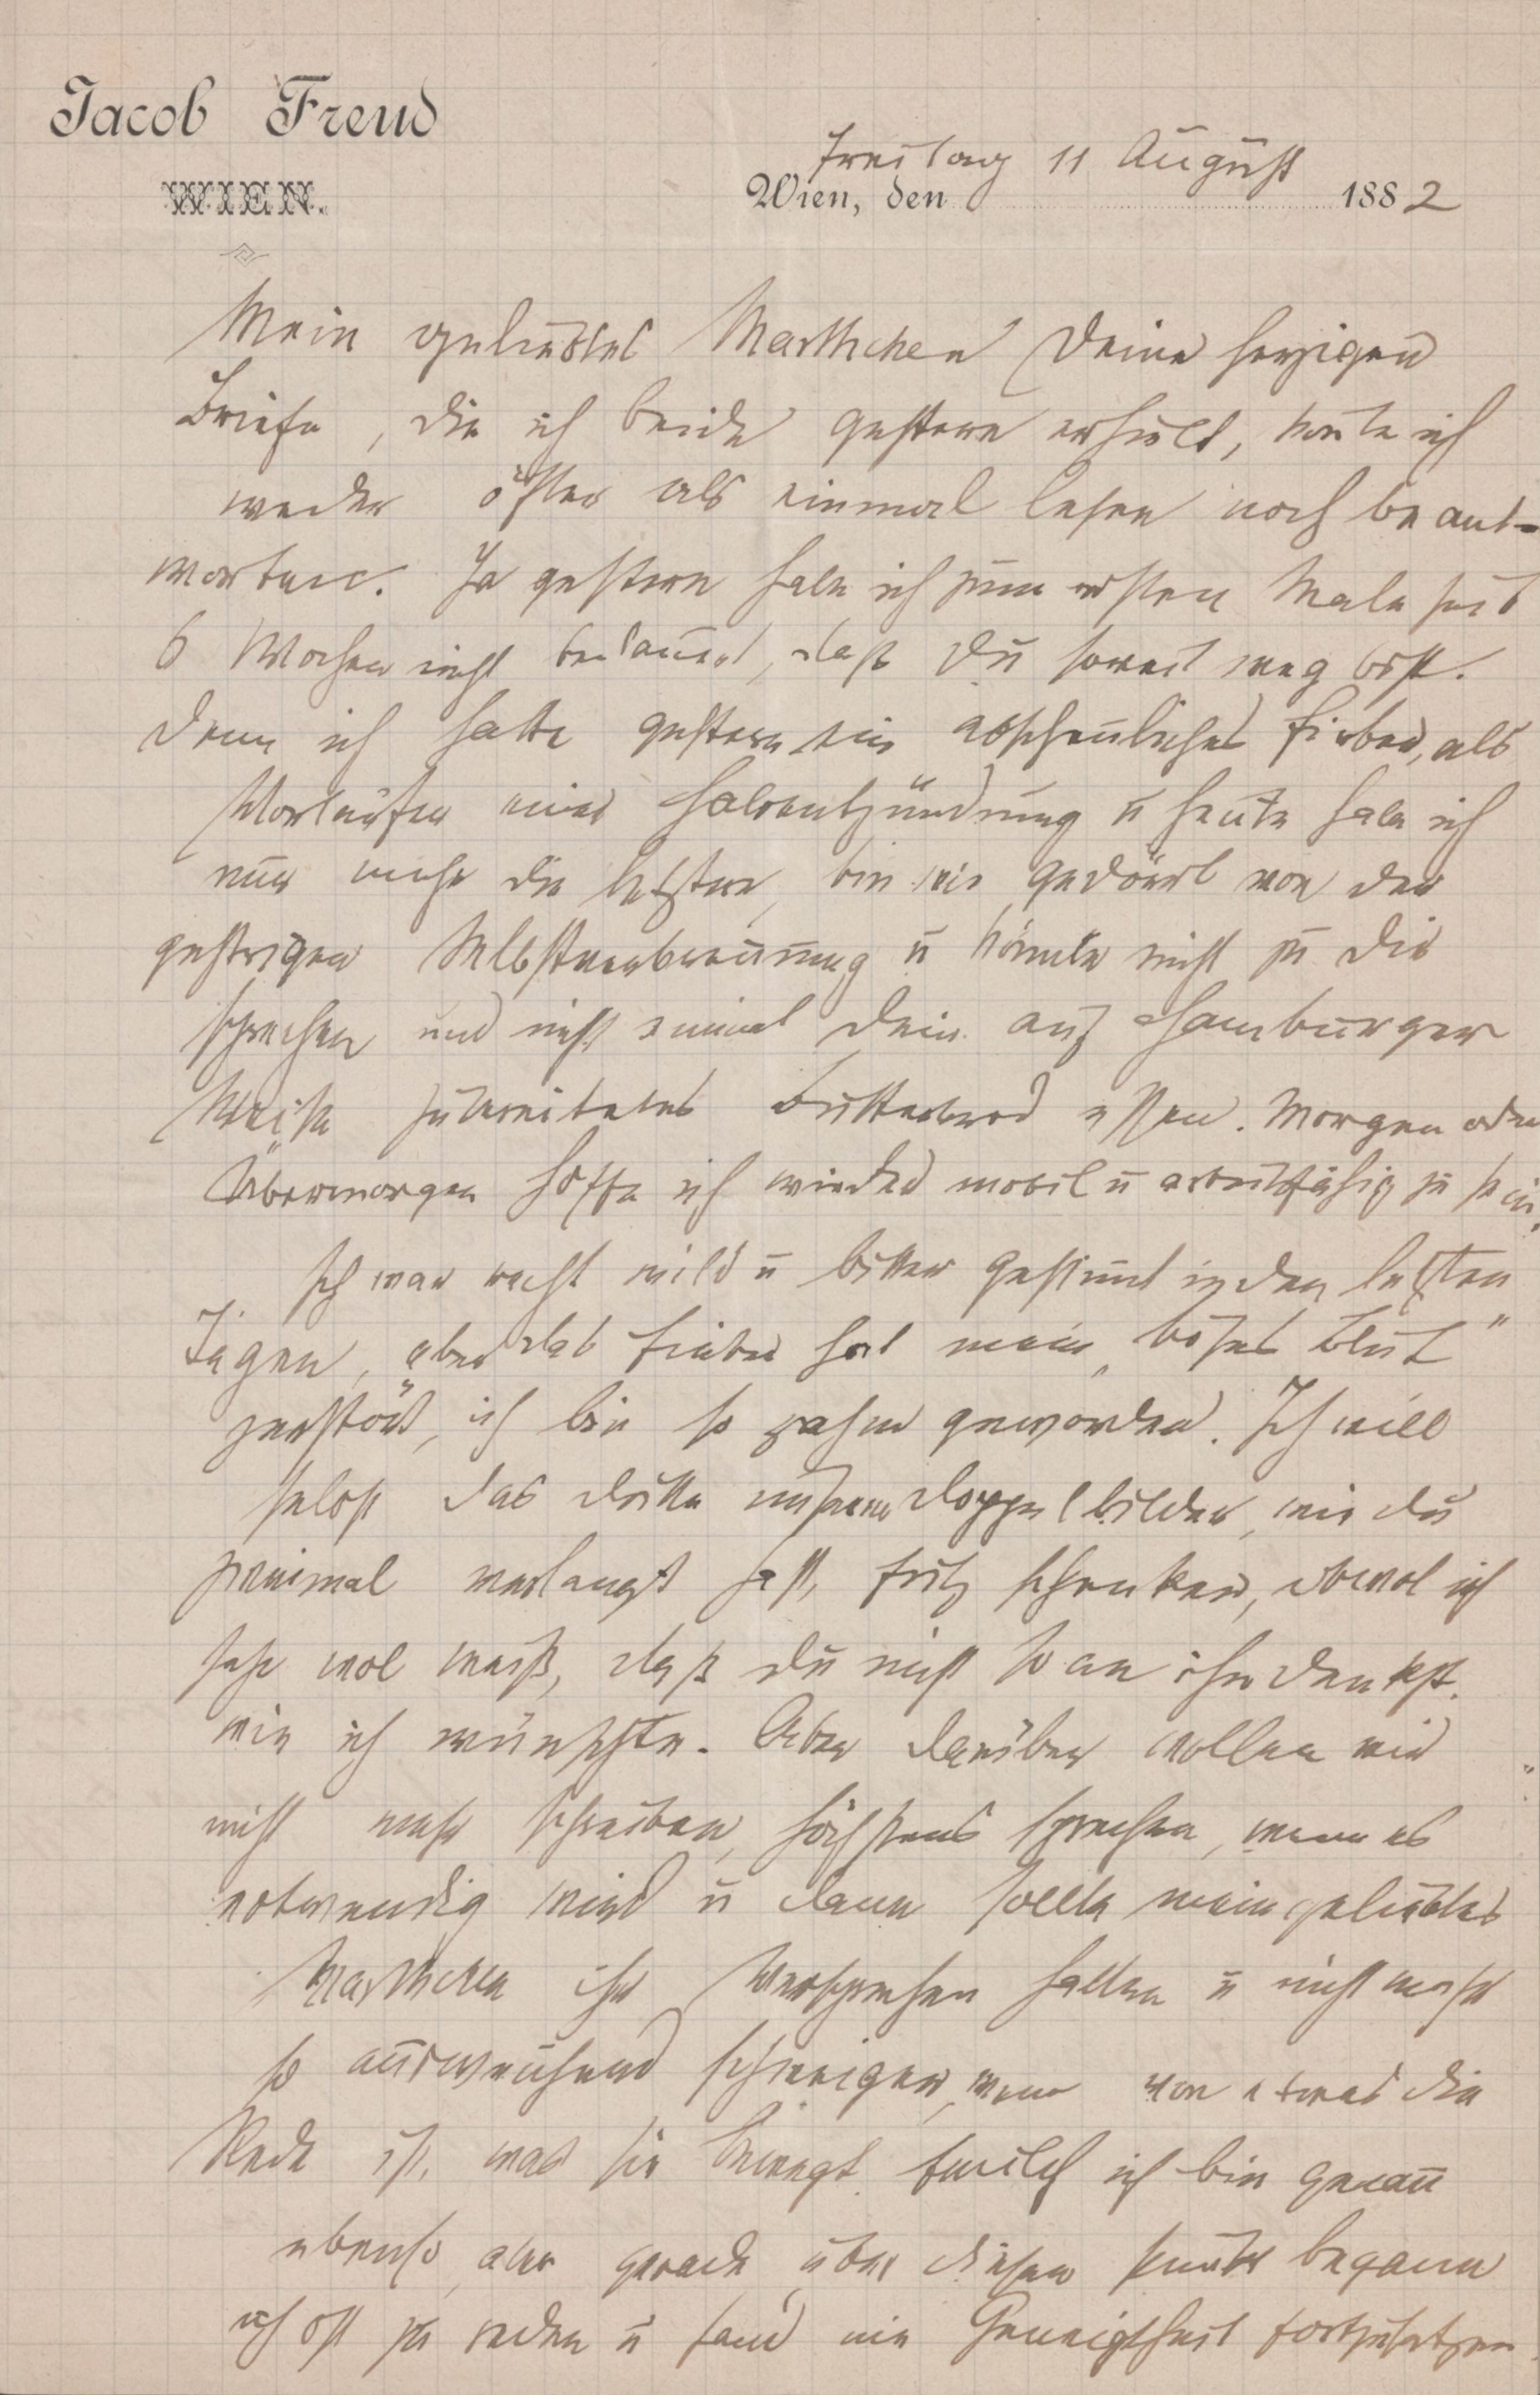 Jacob Freud
WIEN.
Freitag 11 August
Wien, den 1882
Mein geliebtes Marthchen Deine herzigen
Briefe, die ich beide gestern erhielt, konte ich
weder öfter als einmal lesen noch beant-
worten. Ja gestern habe ich zum ersten Male seit
6 Wochen nicht bedauert, daß Du soweit weg bist.
Denn ich hatte gestern ein abscheuliches Fieber, als
Vorläufer einer Halsentzündung u heute habe ich
nur mehr die letztere, bin wie gedörrt von der
gestrigen Selbstverbrennung u könnte nicht zu Dir
sprechen und nicht einmal Dein auf Hamburger
Weise zubereitetes Butterbrod essen. Morgen oder
Übermorgen hoffe ich wieder mobil u arbeitsfähig zu sein.
Ich war recht wild u bitter gestimt in den letzten
Tagen, aber das Fieber hat mein „böses Blut"
zerstört, ich bin so zahm geworden. Ich will
selbst das dritte unserer Doppelbilder, wie Du
zweimal verlangt hast, Fritz schenken, obwol ich
sehr wol weiß, daß Du nicht so an ihn denkst,
wie ich wünschte. Aber darüber wollen wir
nicht mehr schreiben, höchstens sprechen, wenn es
notwendig wird u dann sollte mein geliebtes
Marthchen ihr Versprechen halten u nicht mehr
so ausweichend schweigen, wenn von etwas die
Rede ist, was sie bewegt. Freilich ich bin genau
ebenso, aber gerade über diesen Punkt begann
ich oft zu reden u fand nie Geneigtheit fortzusetzen.